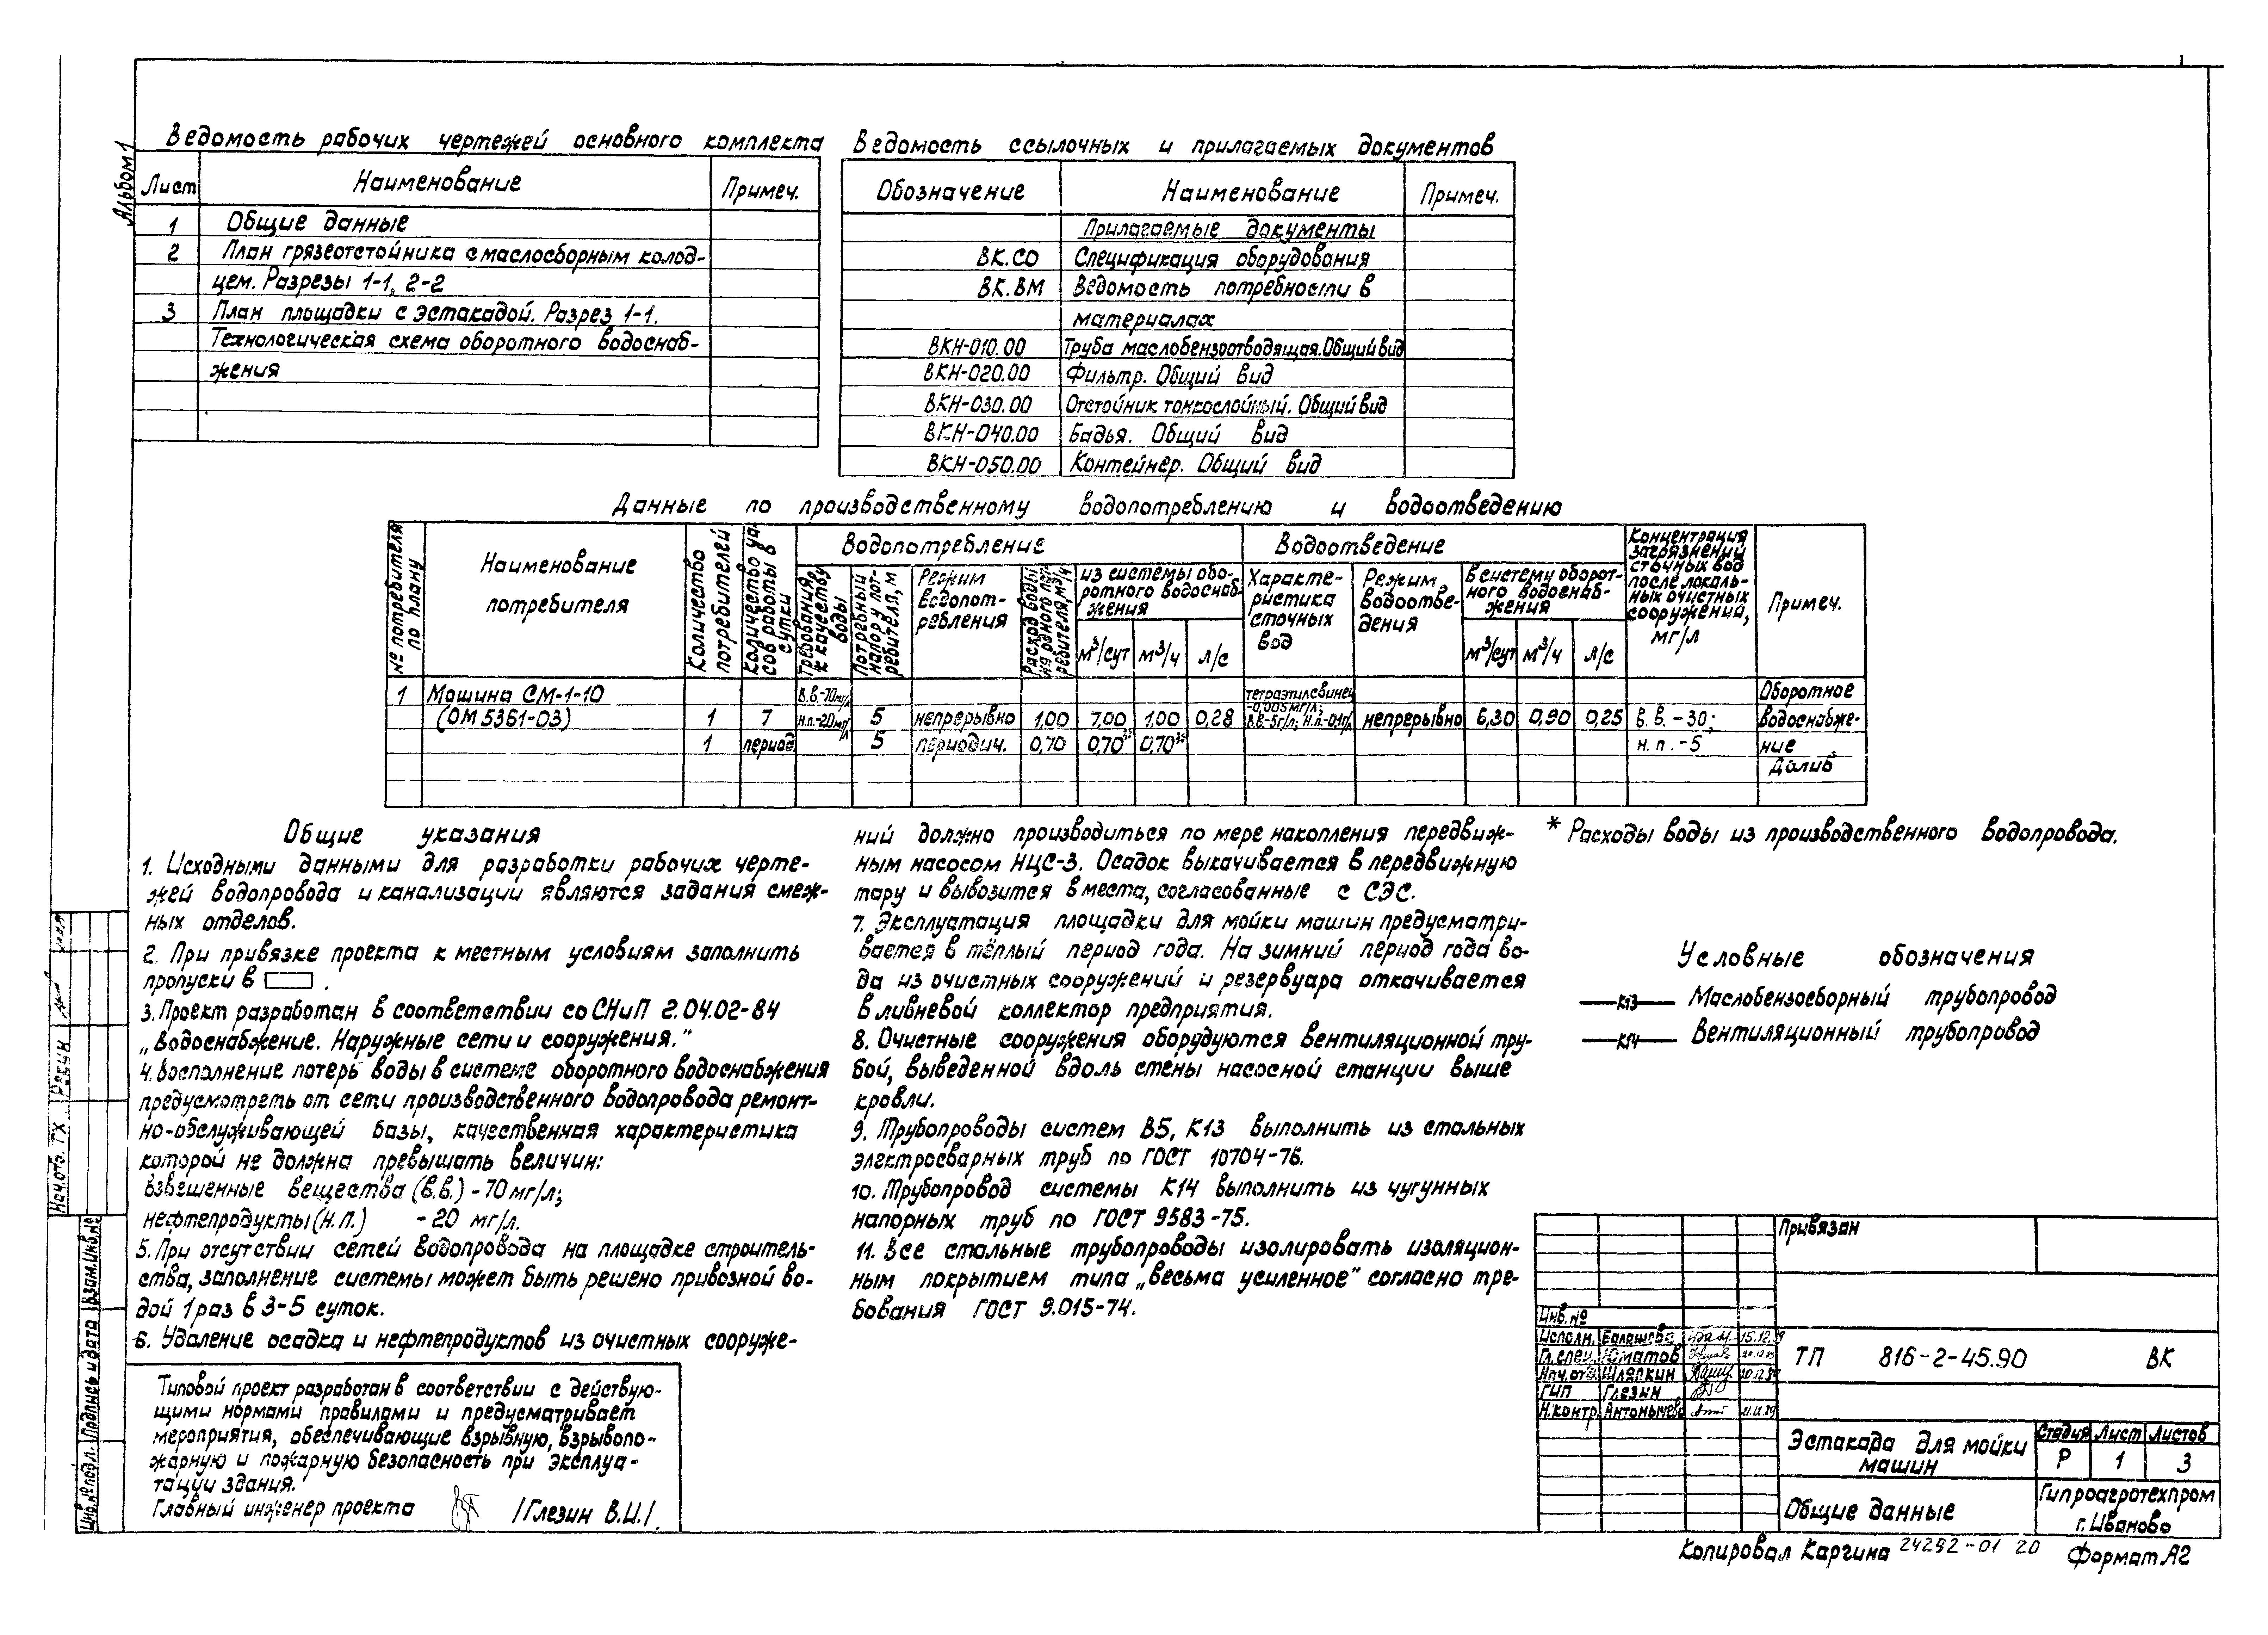 Альбом 1
Ведомость рабочих чертежей основного комплекта
Лист Наименование Примеч.
1 Общие данные
2 План грязеотстойника с маслосборным колод-
цем. Разрезы 1-1, 2-2
3 План площадки с эстакадой. Разрез 1-1.
Технологическая схема оборотного водоснаб-
жения
Ведомость ссылочных и прилагаемых документов
Обозначение Наименование Примеч.
Прилагаемые документы
ВК.СО Спецификация оборудования
ВК.ВМ Ведомость потребности в
материалах
ВКН-010.00 Труба маслобензоотводящая. Общий вид
ВКН-020.00 Фильтр. Общий вид
ВКН-030.00 Отстойник тонкослойный. Общий вид
ВКН-040.00 Бадья. Общий вид
ВКН-050.00 Контейнер. Общий вид
Данные по производственному водопотреблению и водоотведению
№ потребителя
по плану
Наименование
потребителя
Количество
потребителей
Количество ча-
сов работы в
сутки
Водопотребление
Требования
к качеству
воды
Потребный
напор у пот-
ребителя, м
Режим
водопот-
ребления
Расход воды
на одного пот-
ребителя, м³/ч
из системы обо-
ротного водоснаб-
жения
м³/сут м³/ч л/с
Водоотведение
Характе-
ристика
сточных
вод
Режим
водоотве-
дения
в систему оборот-
ного водоснаб-
жения
м³/сут м³/ч л/с
Концентрация
загрязнений
сточных вод
после локаль-
ных очистных
сооружений,
мг/л
Примеч.
1 Машина СМ-1-10 В.В.-70мг/л тетраэтилсвинец Оборотное
(ОМ 5361-03) 1 7 н.п.-20мг/л 5 непрерывно 1,00 7,00 1,00 0,28 -0,005мг/л; В.В-5г/л; Н.п.-0,1г/л непрерывно 6,30 0,90 0,25 В.В.-30; водоснабже-
1 период. 5 периодич. 0,70 0,70* 0,70* н.п.-5 ние
Долив
Общие указания
1. Исходными данными для разработки рабочих черте-
жей водопровода и канализации являются задания смеж-
ных отделов.
2. При привязке проекта к местным условиям заполнить
пропуски в .
3. Проект разработан в соответствии со СНиП 2.04.02-84
„Водоснабжение. Наружные сети и сооружения."
4. Восполнение потерь воды в системе оборотного водоснабжения
предусмотреть от сети производственного водопровода ремонт-
но-обслуживающей базы, качественная характеристика
которой не должна превышать величин:
взвешенные вещества (В.В.) - 70 мг/л;
нефтепродукты (Н.П.) - 20 мг/л.
5. При отсутствии сетей водопровода на площадке строитель-
ства, заполнение системы может быть решено привозной во-
дой 1 раз в 3-5 суток.
6. Удаление осадка и нефтепродуктов из очистных сооруже-
ний должно производиться по мере накопления передвиж-
ным насосом НЦС-3. Осадок выкачивается в передвижную
тару и вывозится в места, согласованные с СЭС.
7. Эксплуатация площадки для мойки машин предусматри-
вается в тёплый период года. На зимний период года во-
да из очистных сооружений и резервуара откачивается
в ливневой коллектор предприятия.
8. Очистные сооружения оборудуются вентиляционной тру-
бой, выведенной вдоль стены насосной станции выше
кровли.
9. Трубопроводы систем В5, К13 выполнить из стальных
электросварных труб по ГОСТ 10704-76.
10. Трубопровод системы К14 выполнить из чугунных
напорных труб по ГОСТ 9583-75.
11. Все стальные трубопроводы изолировать изоляцион-
ным покрытием типа „весьма усиленное" согласно тре-
бования ГОСТ 9.015-74.
* Расходы воды из производственного водопровода.
Условные обозначения
К13 Маслобензосборный трубопровод
К14 Вентиляционный трубопровод
Типовой проект разработан в соответствии с действую-
щими нормами правилами и предусматривает
мероприятия, обеспечивающие взрывную, взрывопо-
жарную и пожарную безопасность при эксплуа-
тации здания.
Главный инженер проекта /Глезин В.И./.
Нач.отд. ТХ
Взам.инв.№
Подпись и дата
Инв.№ подл.
Привязан
Инв.№
Исполн. 15.12.89
Гл.спец. Юматов 20.12.89
Нач.отд. Шляпкин 20.12.89
ГИП Глезин
Н.контр.
ТП 816-2-45.90 ВК
Эстакада для мойки
машин
Стадия Лист Листов
Р 1 3
Общие данные
Гипроагротехпром
г. Иваново
Копировал Каргина 24292-01 20 Формат А2